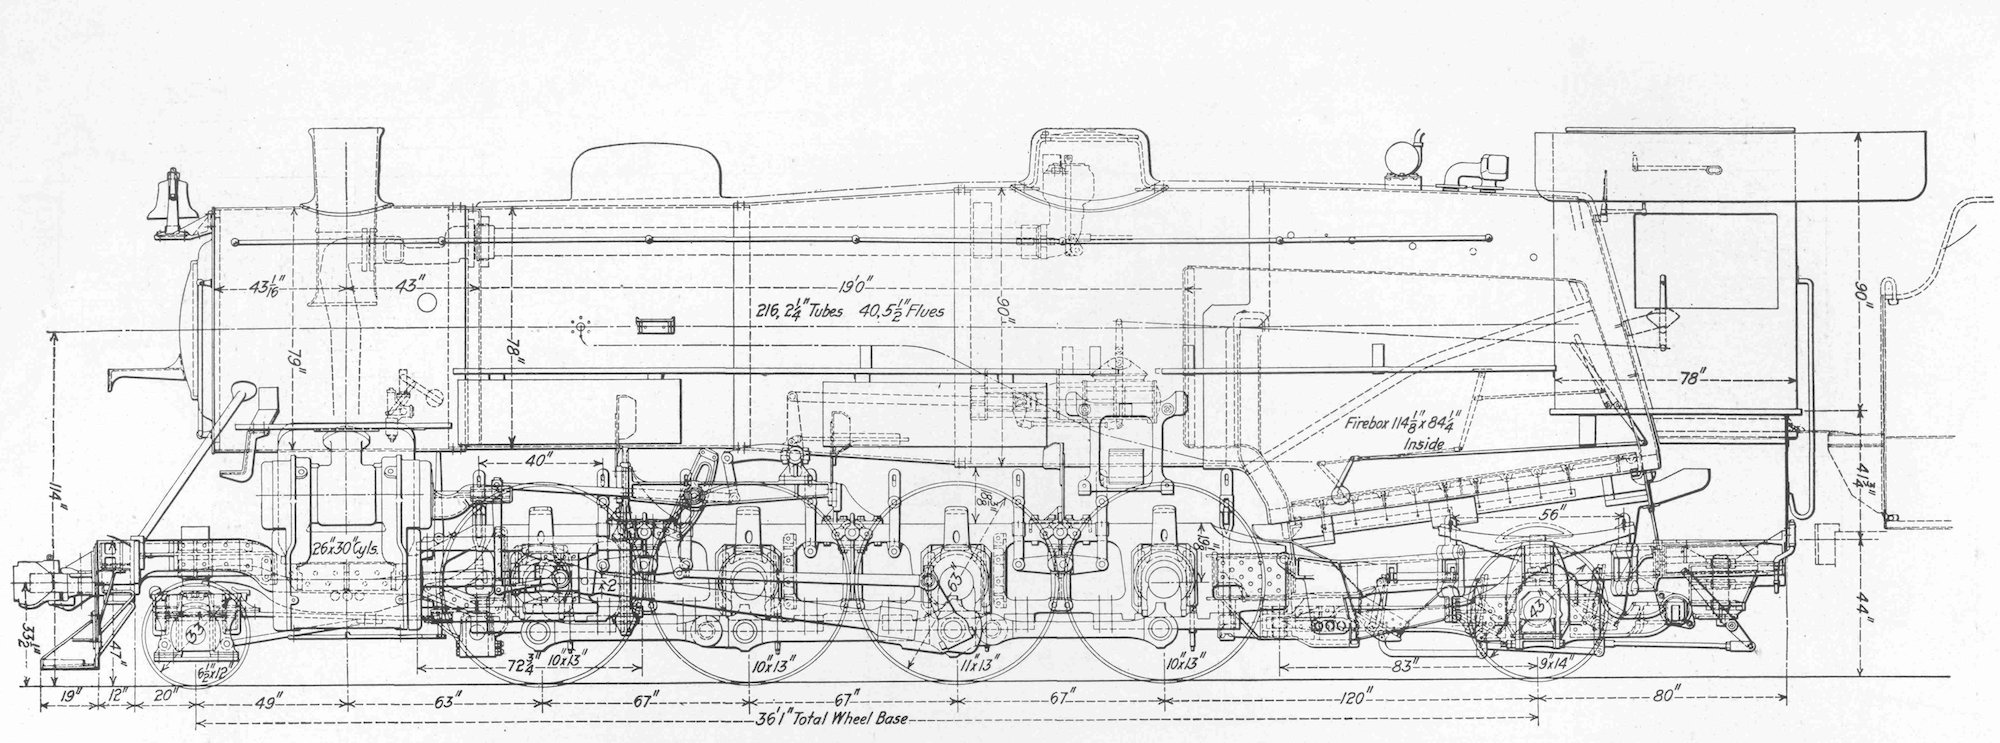 43 1/16"
43"
19'0"
216, 2 1/4" Tubes 40, 5 1/2" Flues
79"
78"
90"
90"
78"
Firebox 114 1/8" x 84 1/4"
Inside
114"
40"
26"x30" Cyls.
63"
56"
41 3/4"
44"
33 1/2"
47"
33"
6 1/2"x12"
72 3/4"
10"x13"
10"x13"
11"x13"
10"x13"
83"
43"
9"x14"
19"
12"
20"
49"
63"
67"
67"
67"
120"
80"
36'1" Total Wheel Base